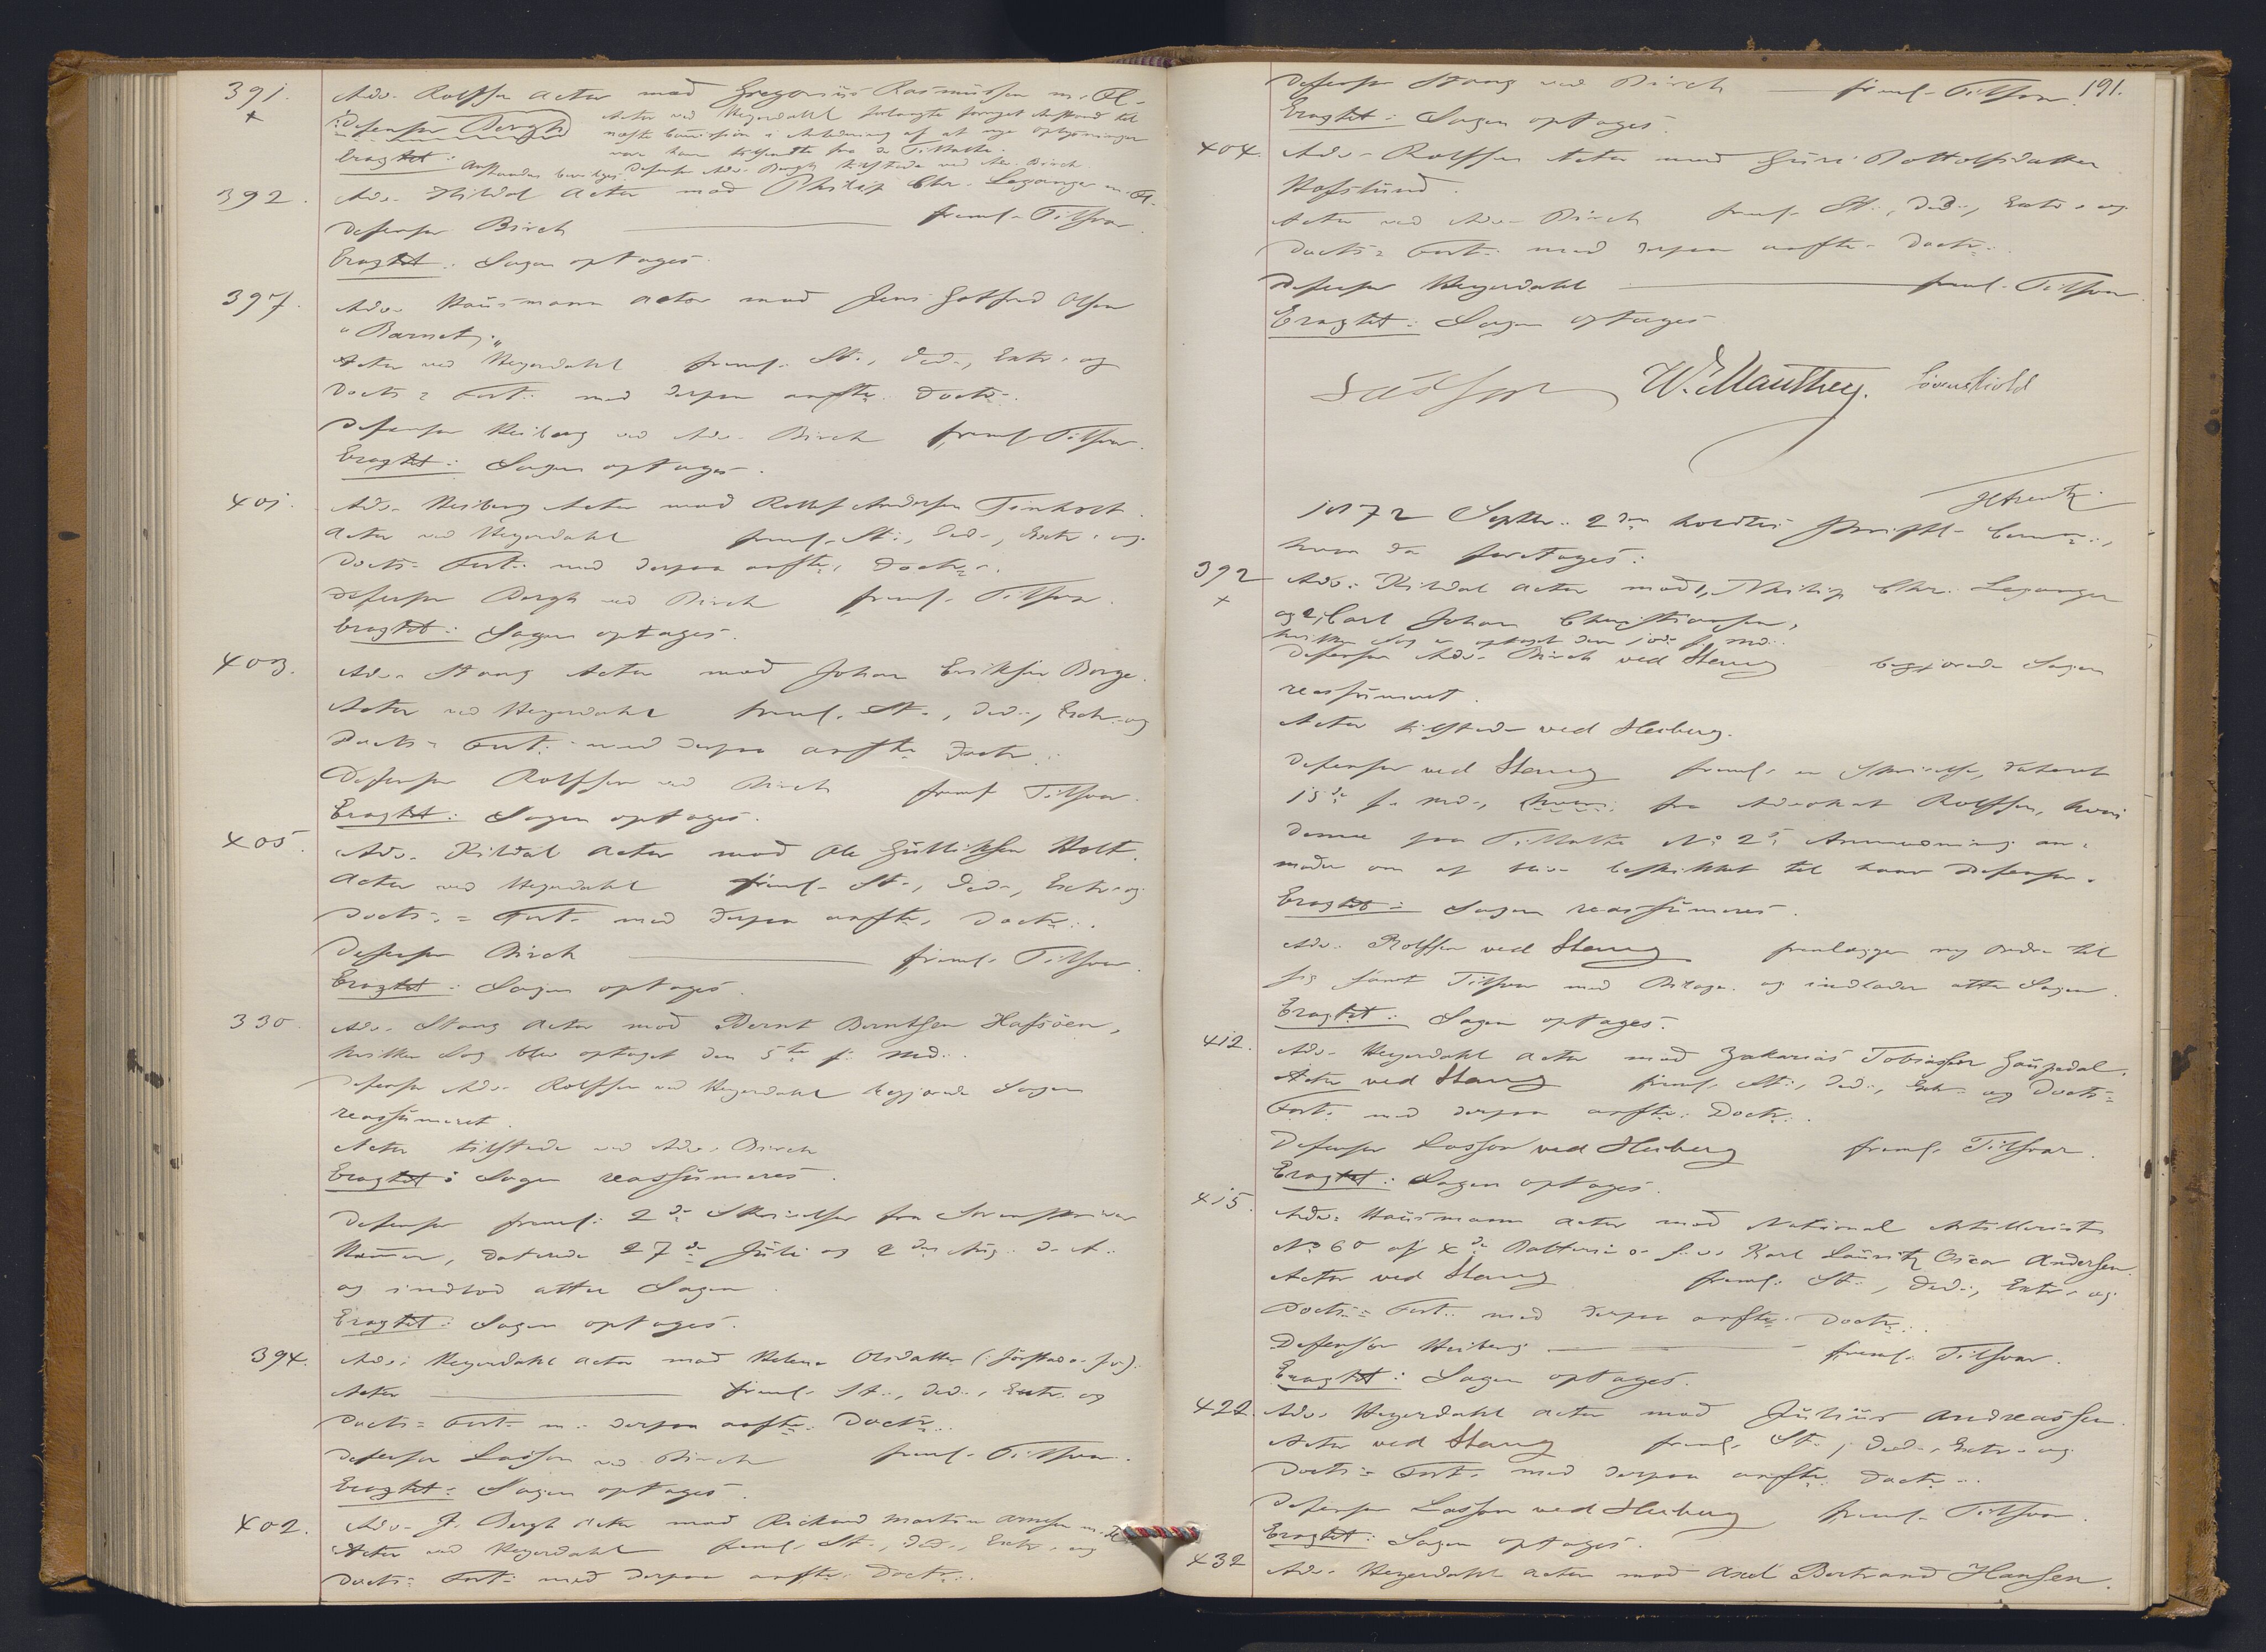 391. Adv. Rolfsen Actor mod Gregorius Rasmussen m. Fl.
+
Actor ved Heyerdahl forlangte forøget Anstand til
Defensor Bergh
næste Commission i Anledning af at nye Oplysninger
vare ham tilsendte fra de Tiltalte.
Eragtet: Anstanden bevilges. Defensor Adv. Bergh tilstede ved Adv. Birch.
392. Adv. Kildal Actor mod Philip Chr. Leganger m. Fl.
Defensor Birch freml. Tilsvar.
Eragtet: Sagen optages.
397. Adv. Hausmann Actor mod Jens Gotfred Olsen
"Barnet".
Actor ved Heyerdahl freml. St., Ded., Extr. og
Docts: Fort: med derpaa anfte. Doctr.
Defensor Heiberg ved Adv. Birch freml. Tilsvar.
Eragtet: Sagen optages.
401. Adv. Heiberg Actor mod Rollef Andersen Finholt.
Actor ved Heyerdahl freml. St., Ded., Extr. og
Docts: Fort: med derpaa anfte. Doctr.
Defensor Bergh ved Birch freml. Tilsvar.
Eragtet: Sagen optages.
403. Adv. Stang Actor mod Johan Eriksen Borge.
Actor ved Heyerdahl freml. St., Ded., Extr. og
Docts: Fort: med derpaa anfte Doctr.
Defensor Rolfsen ved Birch freml. Tilsvar.
Eragtet: Sagen optages.
405. Adv. Kildal Actor mod Ole Gulliksen Holt.
Actor ved Heyerdahl freml. St., Ded., Extr. og
Docts: Fort: med derpaa anfte. Doctr.
Defensor Birch freml. Tilsvar.
Eragtet: Sagen optages.
330. Adv. Stang Actor mod Bernt Berntsen Hafsöen,
hvilken Sag blev optaget den 5te f. Md.
Defensor Adv. Rolfsen ved Heyerdahl begjærede Sagen
reassumeret.
Actor tilstede ved Adv. Birch
Eragtet: Sagen reassumeres.
Defensor freml: 2de Skrivelser fra
daterede 27de Juli og 2den Aug. d. A.
og indlod atter Sagen.
Eragtet: Sagen optages.
394. Adv. Heyerdahl Actor mod Helene Olsdatter
Actor freml. St., Ded., Extr. og
Docts: Fort: m. derpaa anfte. Doctr.
Defensor Lasson ved Birch freml. Tilsvar.
Eragtet: Sagen optages.
402. Adv. J. Bergh Actor mod Richard Martin Arnesen m. Fl.
Actor ved Heyerdahl freml. St., Ded., Extr. og
Docts: Fort: med derpaa anfte. Doctr.
191.
Defensor Stang ved Birch freml. Tilsvar.
Eragtet: Sagen optages.
404. Adv. Rolfsen Actor mod Guri Bottolfsdatter
Hofslund.
Actor ved Adv. Birch freml. St., Ded., Extr. og
Docts: Fort: med derpaa anfte. Doctr.
Defensor Heyerdahl freml. Tilsvar.
Eragtet: Sagen optages
W. Manthey. Løvenskiold
1872 Septbr. 2den holdtes Skriftl. Comm.,
hvor da foretages:
392 Adv. Kildal Actor mod 1, Philip Chr. Leganger
+
og 2, Carl Johan Christiansen,
hvilken Sag er optaget den f. Md.
Defensor Adv. Birch ved Stang begjærede Sagen
reassumeret.
Actor tilstede ved Heiberg.
Defensor ved Stang freml. en Skrivelse, dateret
15de f. Md., fra Advokat Rolfsen, hvori
denne paa Tiltalte No 2s Anmodning an-
moder om at blive beskikket til hans Defensor.
Eragtet: Sagen reassumeres.
Adv. Rolfsen ved Stang fremlægger ny Ordre til
sig samt Tilsvar med Bilage og indlader atter Sagen.
Eragtet: Sagen optages.
412. Adv. Heyerdahl Actor mod Zakarias Tobiassen Gaupedal.
Actor ved Stang freml. St., Ded., Extr. og Docts:
Fort: med derpaa anfte. Doctr.
Defensor Lasson ved Heiberg freml. Tilsvar.
Eragtet: Sagen optages.
415. Adv. Hausmann Actor mod National Artillerist
No 60 af 4de Batteri Karl Lauritz Oscar Andersen.
Actor ved Stang freml. St., Ded., Extr. og
Docts: Fort: med derpaa anfte. Doctr.
Defensor Heiberg freml. Tilsvar.
Eragtet: Sagen optages.
422. Adv. Heyerdahl Actor mod Julius Andreassen.
Actor ved Stang freml. St., Ded., Extr. og
Docts: Fort: med derpaa anfte. Doctr.
Defensor Lasson ved Heiberg freml. Tilsvar.
Eragtet: Sagen optages.
432 Adv. Heyerdahl Actor mod Axel Bertrand Hansen.